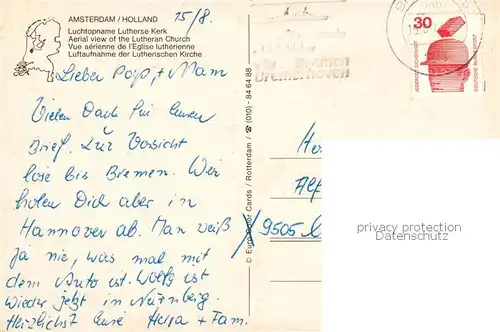 AMSTERDAM / HOLLAND
Luchtopname Lutherse Kerk
Aerial view of the Lutheran Church
Vue aérienne de l'Eglise luthérienne
Luftaufnahme der Lutherischen Kirche
15/8.
Lieber Paps, + Mam
Vielen Dank für Euren
Brief. Zur Vorsicht
löse bis Bremen. Wir
holen Dich aber in
Hannover ab. Man weiß
ja nie, was mal mit
dem Auto ist. Wolfg ist
wieder jetzt in Nürnberg.
Herzlichst Eure + Fam.
© Euro Color Cards / Rotterdam / ☎ (010) - 84 64 88
Bremen
Bremerhaven
30
DEUTSCHE BUNDESPOST
9505
privacy protection
Datenschutz